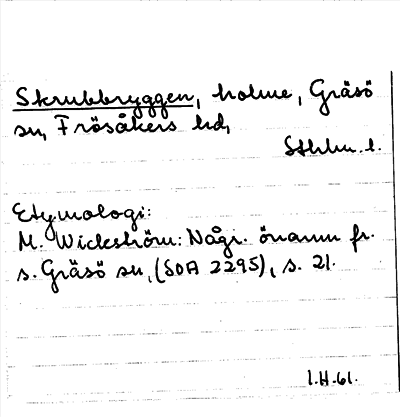 Skrubbryggen, holme, Gräsö
sn, Frösåkers hd,
Sthlm. l.
Etymologi:
M. Wickström: Någr. önamn fr.
s. Gräsö sn, (SOA 2295), s. 21.
1.H.61.